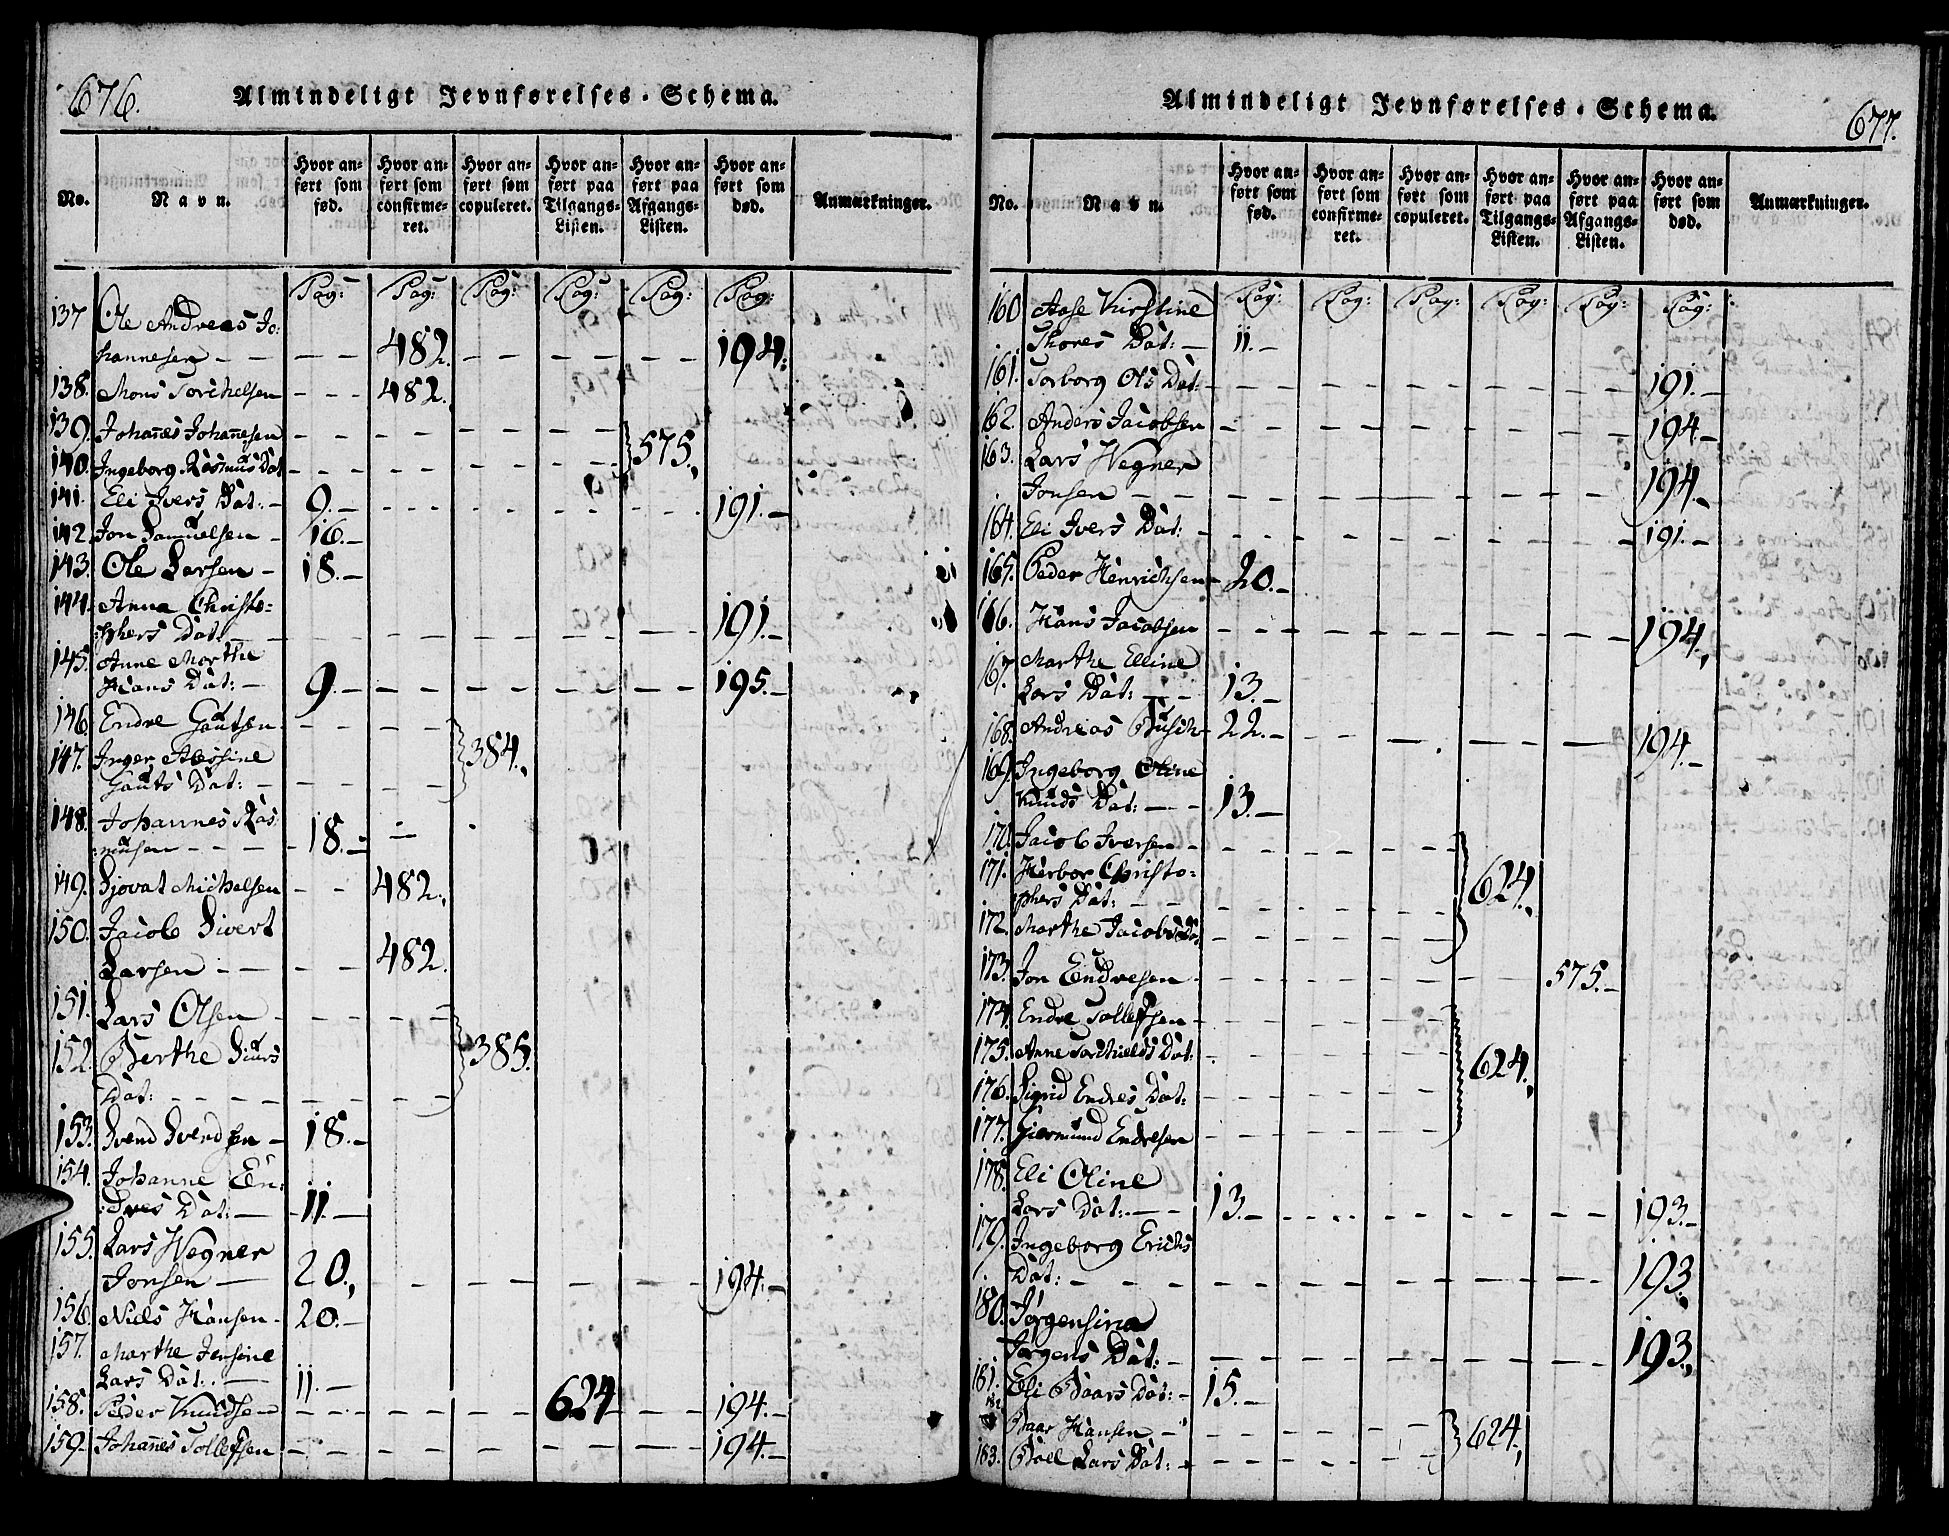 676.
Almindeligt Jevnførelses-Schema.
No.
Navn.
Hvor anført som fød.
Hvor anført som confirmeret.
Hvor anført som copuleret.
Hvor anført paa Tilgangs-Listen.
Hvor anført paa Afgangs-Listen.
Hvor anført som død.
Anmærkninger.
Pag: Pag: Pag: Pag: Pag: Pag:
137 Ole Andreas Jo:
hannesen - - - - 482. - - - - - - 194.
138. Mons Torchelsen - - - 482.
139. Johañes Johañesen - - - - - - - -
140. Ingeborg Rasmus Dat - - - - - - - - 575.
141. Eli Ivers Dat: - 9. - - - - - - - - - - 191. -
142. Jon Samuelsen - 16. -
143. Ole Larsen - 18. -
144. Anna Christo=
phers Dat. - - - - - - - - - - - 191. -
145. Anne Marthe
Hans Dat: - 9. - - - - - - - - - 195. -
146. Endre Gautsen - - - - -
147. Inger
Gauts Dat: - - - - - 384.
148. Johannes Ras:
musen - - - - 18. -
149. Sjovat Michelsen - - 482.
150. Jacob Sivert
Larsen - - - - 482.
151. Lars Olsen - - - - - -
152. Berthe Siurs
Dat: - - - - - - - - 385.
153. Svend Svendsen - 18. -
154. Johanne En:
dres Dat: - - 11. -
155. Lars Wegner
Jonsen - 20. - - - - - - - - 194. -
156. Niels Hansen - 20. -
157. Marthe Jensine
Lars Dat. - 11. -
158. Peder Knudsen - - - - - - - 624 - - 194. -
159. Johañes Tollefsen - - - - - - - - - - 194. -
Almindeligt Jevnførelses-Schema.
677.
No.
Navn.
Hvor anført som fød.
Hvor anført som confirmeret.
Hvor anført som copuleret.
Hvor anført paa Tilgangs-Listen.
Hvor anført paa Afgangs-Listen.
Hvor anført som død.
Anmærkninger.
Pag: Pag: Pag: Pag: Pag: Pag:
160 Aase Kirstine
Thores Dat: - 11. -
161. Torborg Ols Dat: - - - - - - - - - - 191. -
162. Anders Jacobsen - - - - - - - - - - 194 -
163. Lars Wegner
Jonsen - - - - - - - - - - - 194. -
164. Eli Ivers Dat: - - - - - - - - - - 191. -
165. Peder Henrichsen - 20. -
166. Hans Jacobsen - - - - - - - - - - 194.
167. Marthe Elline
Lars Dat: - - 13. -
168. Andreas Busch - 22. - - - - - - 194. -
169. Ingeborg Oline
Knuds Dat: - - 13. -
170. Jacob Iversen - - - - - - -
171. Herbor Christo=
phers Dat: - - - - - - - - 624.
172. Marthe Jacobs Dat - - - - - -
173. Jon Endresen - - - - - - - - - 575. -
174. Endre Tollefsen - - - - - - -
175. Anne Torchields Dat: - - - - - - 624.
176. Sigrid Endres Dat: - - - - - -
177. Giermund Endresen - - - - - -
178. Eli Oline
Lars Dat: - - 13. - - - - - - - - 193. -
179. Ingeborg Erichs
Dat: - - - - - - - - - - - - 193.
180. Jørgensina
Jørgens Dat: - - - - - - - - - - 193.
181. Eli Baars Dat: - 15. -
182 Baar Hansen - - - - - - 624.
183. Boel Lars Dat: - - - - - -